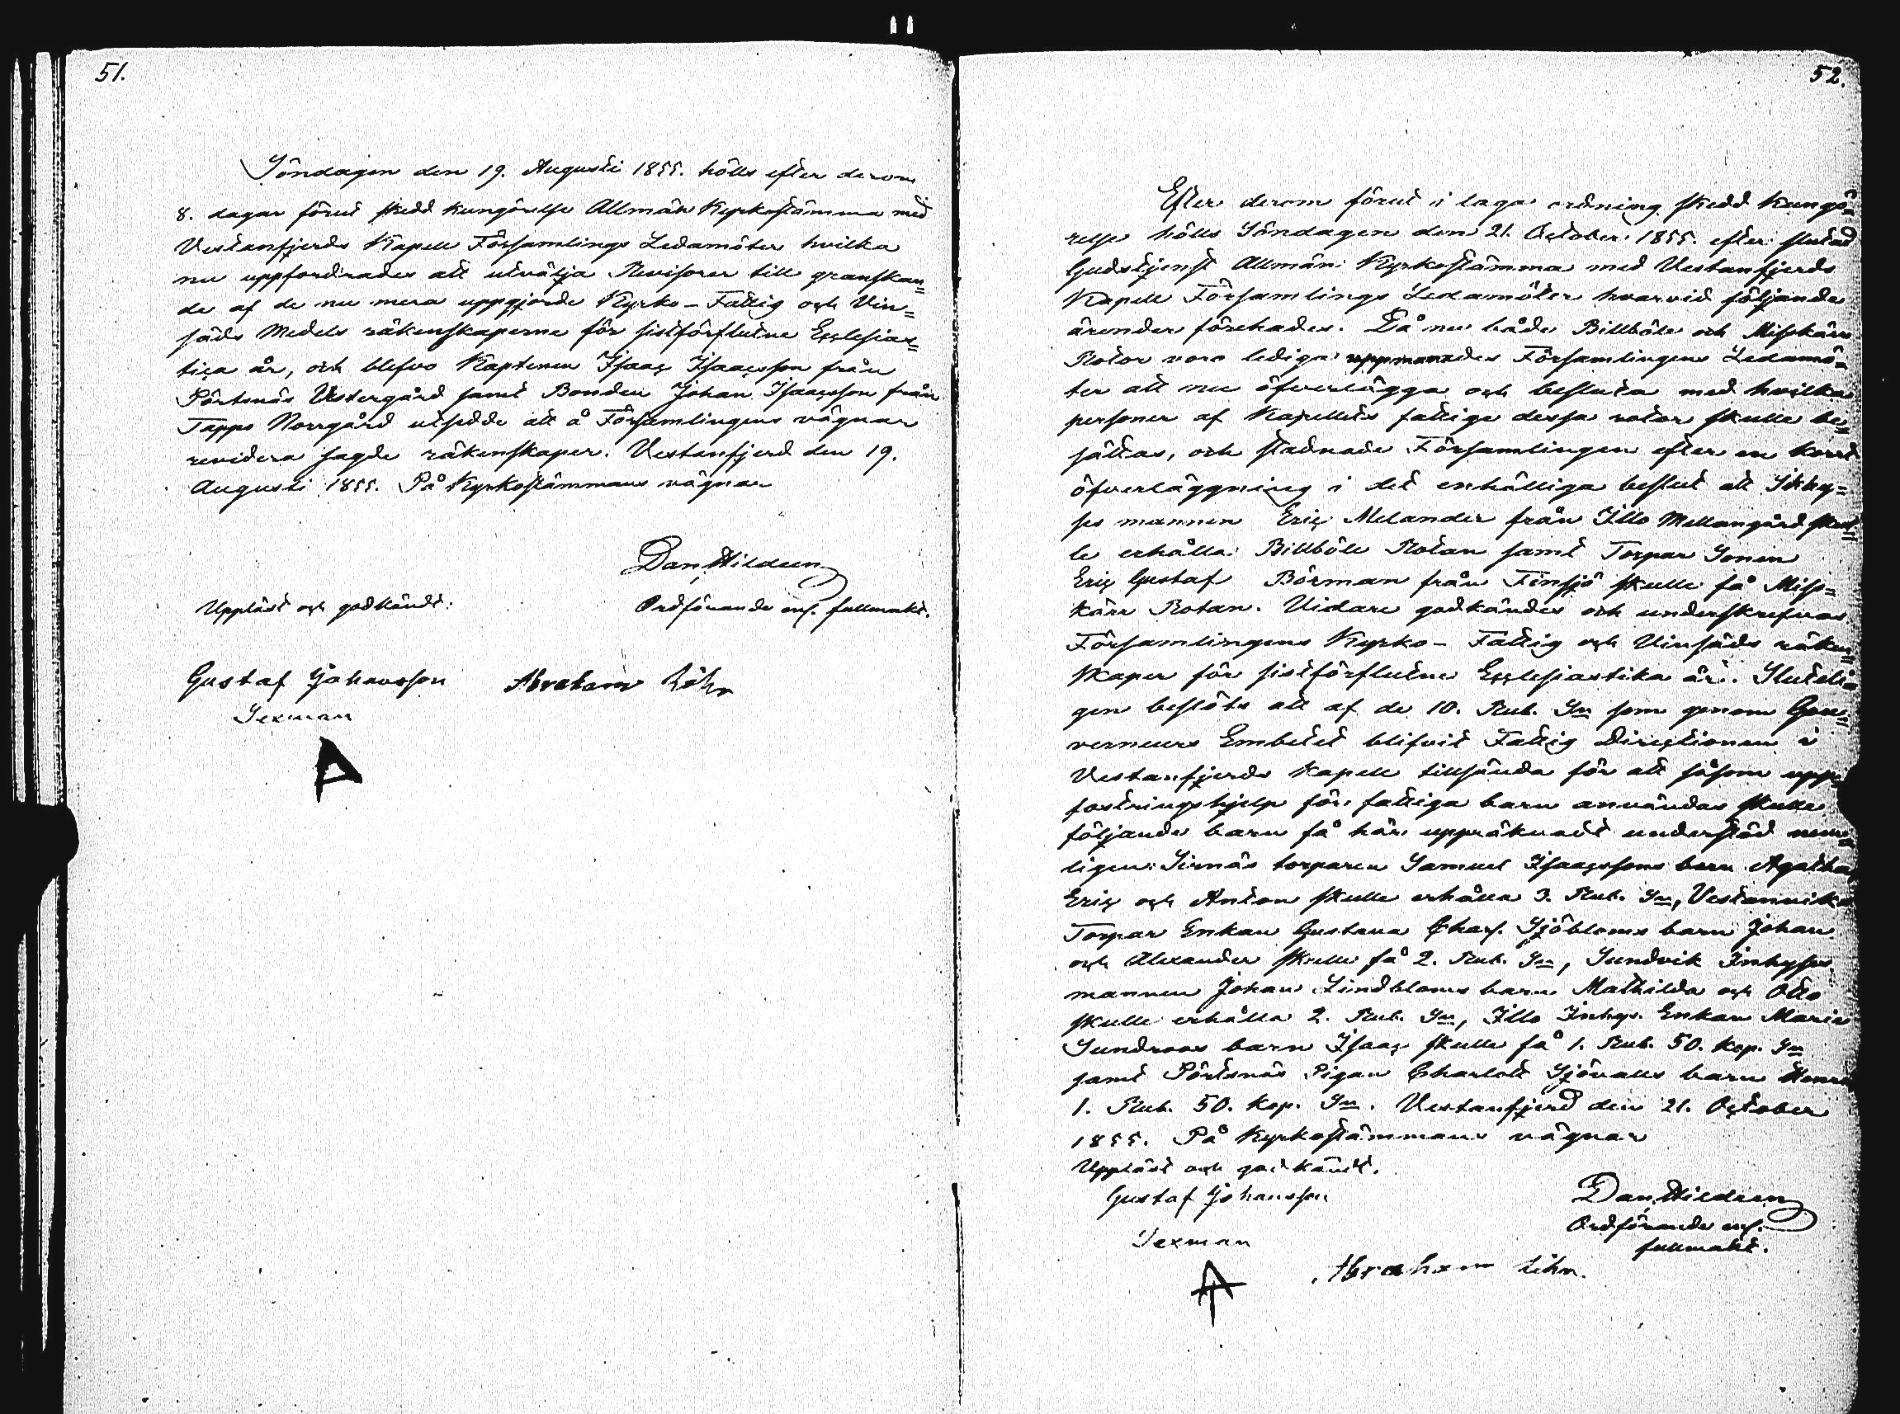 51.
Söndagen den 19. Augusti 1855. hölls efter derom
8. dagar förut skedd kungörelse Allmän Kyrkostämma med
Vestanfjerds Kapell Församlings Ledamöter hvilka
nu uppfordrades att utvälja Revisorer till granskan=
de af de nu mera uppgjorde Kyrko-Fattig och Vin=
säds Medels räkenskaperne för sistförflutne Ecclesias=
tica år, och blefvo Kaptenen Isaac Isaacsson från
Pörtsnäs Westergård samt Bonden Johan Isaacsson från
Tappo Norrgård utsedde att å Församlingens vägnar
revidera sagde räkenskaper. Vestanfjerd den 19.
Augusti 1855. På Kyrkostämmans vägnar
Dan. Hildeen
Uppläst och godkändt.
Ordförande enl. fullmakt.
Gustaf Johansson
Abraham
Sexman
52.
Efter derom förut i laga ordning skedd kungö=
relse hölls Söndagen den 21. October 1855. efter slutad
Gudstjenst Allmän Kyrkostämma med Vestanfjerds
Kapell Församlings Ledamöter hvarvid följande
ärender förehades. Då nu både Billböle och Misskärr
Rotor voro lediga uppmanades Församlingens Ledamö=
ter att nu öfverlägga och besluta med hvilka
personer af Kapellets fattige dessa rotor skulle be=
sättas, och stadnade Församlingen efter en kort
öfverläggning i det enhälliga beslut att Inhy=
ses mannen Eric Melander från Illo Mellangård skul=
le erhålla Billböle Rotan samt Torpar Sonen
Eric Gustaf Börman från Finsjö skulle få Miss=
kärr Rotan. Vidare godkändes och underskrefvos
Församlingens Kyrko- Fattig och Vinsäds räken=
skaper för sistförflutne Ecclesiastika år. Sluteli=
gen beslöts att af de 10. Rub. Sr som genom Gou=
verneurs Embetet blifvit Fattig Directionen i
Vestanfjerds Kapell tillsända för att såsom upp=
fostringshjelp för fattiga barn användas skulle
följande barn få här uppräknadt understöd nem=
ligen: Sirnäs torparen Samuel Isaacssons barn Agatha
Eric och Anton skulle erhålla 3. Rub. Sr, Vestanviks
Torpar Enkan Gustava Char. Sjöbloms barn Johan
och Alexander skulle få 2. Rub. Sr, Sundvik Inhyses
mannen Johan Lindbloms barn Mathilda och Otto
skulle erhålla 2. Rub. Sr, Illo Inhys. Enkan Maria
Sundroos barn Isaac skulle få 1. Rub. 50. kop. Sr
samt Pörtsnäs Pigan Charlott Sjövalls barn
1. Rub. 50. kop. Sr. Vestanfjerd den 21. October
1855. På Kyrkostämmans vägnar
Uppläst och godkändt.
Gustaf Johansson
Dan. Hildeen
Ordförande enl.
fullmakt.
Sexman
Abraham